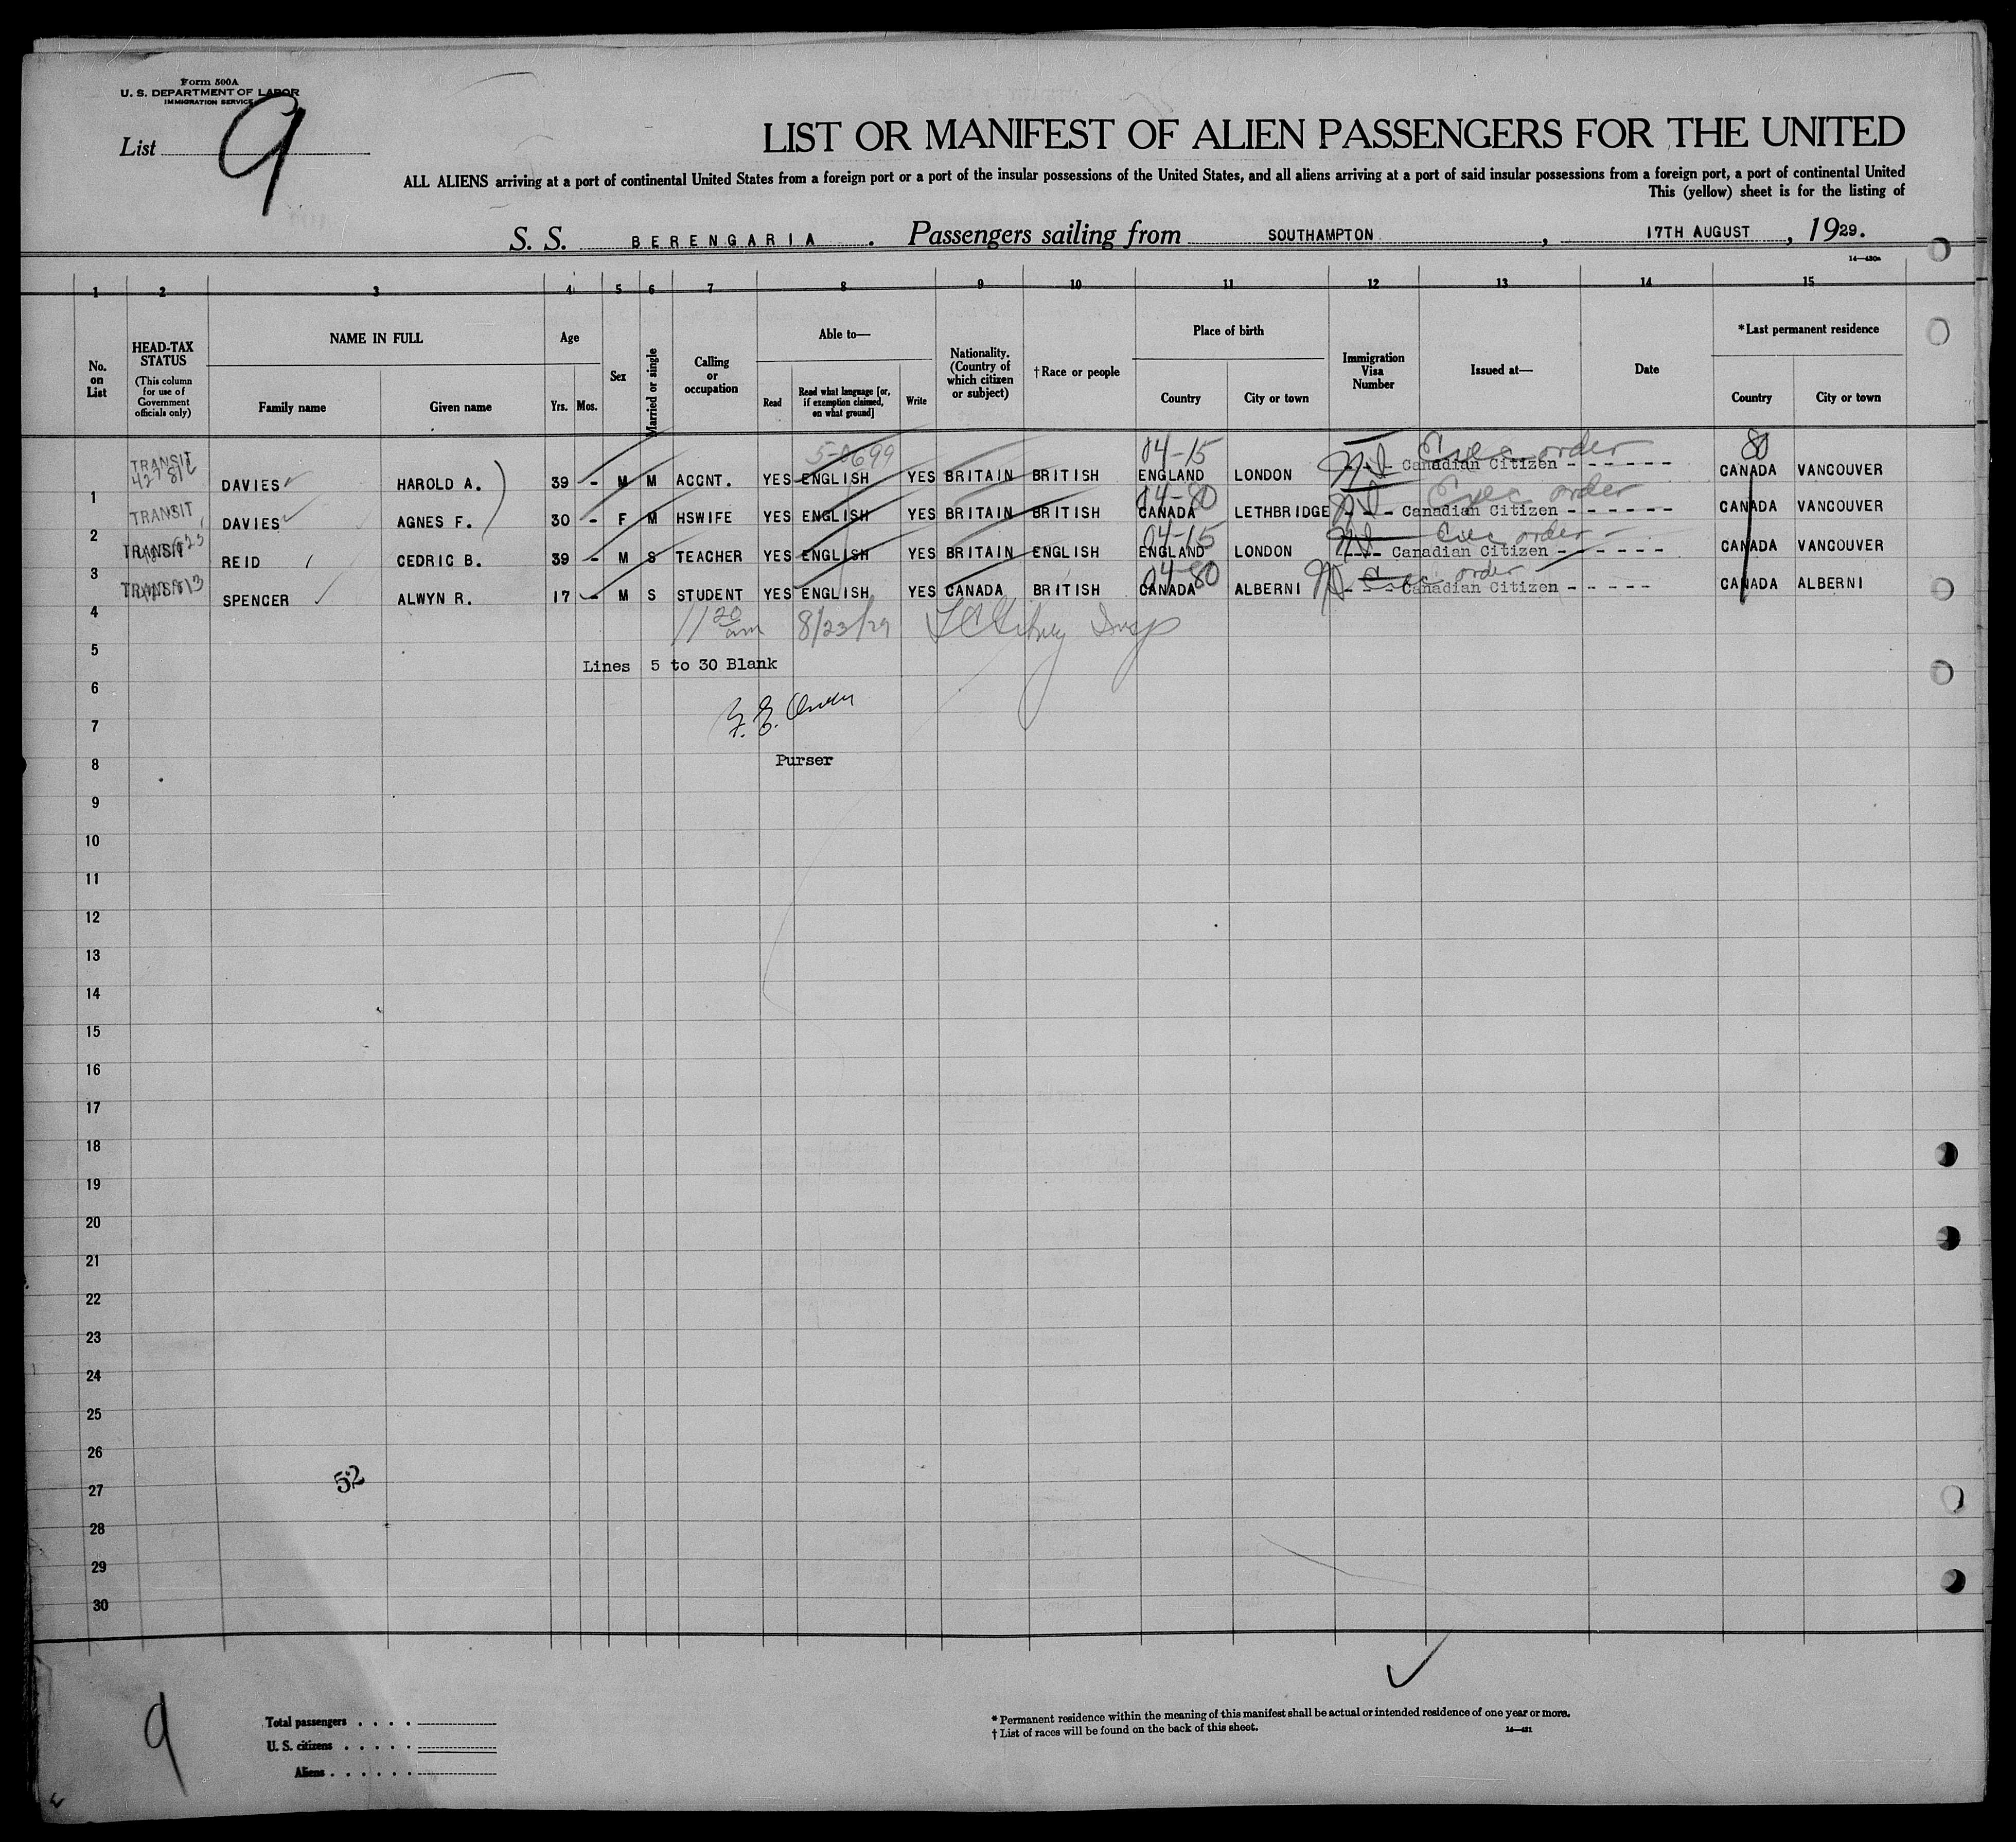 Form 500A
U. S. DEPARTMENT OF LABOR
IMMIGRATION SERVICE
List 9
LIST OR MANIFEST OF ALIEN PASSENGERS FOR THE UNITED
ALL ALIENS arriving at a port of continental United States from a foreign port or a port of the insular possessions of the United States, and all aliens arriving at a port of said insular possessions from a foreign port, a port of continental United
This (yellow) sheet is for the listing of
S. S. BERENGARIA. Passengers sailing from SOUTHAMPTON, 17TH AUGUST, 1929.
14—430a
1 2 3 4 5 6 7 8 9 10 11 12 13 14 15
No. on List
HEAD-TAX STATUS
(This column for use of Government officials only)
NAME IN FULL
Family name Given name
Age
Yrs. Mos.
Sex
Married or single
Calling or occupation
Able to—
Read Read what language [or, if exemption claimed, on what ground] Write
Nationality. (Country of which citizen or subject)
†Race or people
Place of birth
Country City or town
Immigration Visa Number
Issued at—
Date
*Last permanent residence
Country City or town
5-0699 04-15 Exec order 80
1 TRANSIT DAVIES HAROLD A. 39 - M M ACCNT. YES ENGLISH YES BRITAIN BRITISH ENGLAND LONDON - Canadian Citizen - - - - - - CANADA VANCOUVER
04-80 Exec order
2 TRANSIT DAVIES AGNES F. 30 - F M HSWIFE YES ENGLISH YES BRITAIN BRITISH CANADA LETHBRIDGE - - - Canadian Citizen - - - - - - CANADA VANCOUVER
04-15 Exec order
3 TRANSIT REID CEDRIC B. 39 - M S TEACHER YES ENGLISH YES BRITAIN ENGLISH ENGLAND LONDON - - - Canadian Citizen - - - - - - CANADA VANCOUVER
04-80 Exec order
4 TRANSIT SPENCER ALWYN R. 17 - M S STUDENT YES ENGLISH YES CANADA BRITISH CANADA ALBERNI - - - Canadian Citizen - - - - - CANADA ALBERNI
11 20 am 8/23/29 Insp
5
Lines 5 to 30 Blank
6
7
8 Purser
9
10
11
12
13
14
15
16
17
18
19
20
21
22
23
24
25
26
52
27
28
29
30
9
Total passengers . . . .
U. S. citizens . . . . .
Aliens . . . . . .
* Permanent residence within the meaning of this manifest shall be actual or intended residence of one year or more.
† List of races will be found on the back of this sheet.
14—431